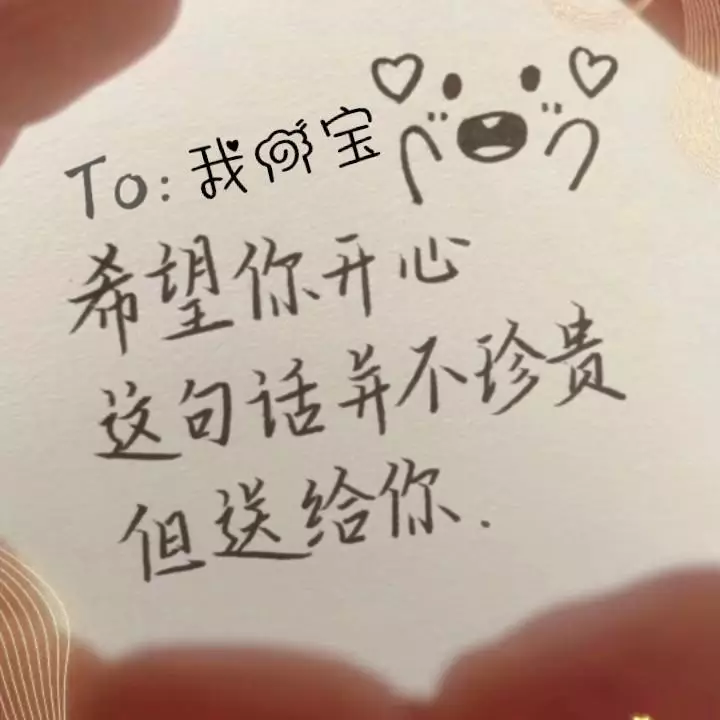 To: 我宝
希望你开心
这句话并不珍贵
但送给你.